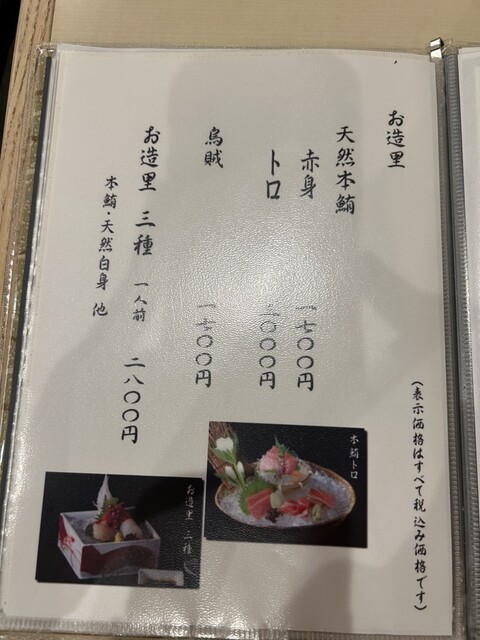 (表示価格はすべて税込み価格です)
お造里
天然本鮪
赤身 一七〇〇円
トロ
烏賊
お造里 三種 一人前 二八〇〇円
本鮪・天然白身 他
本鮪トロ
お造里 三種